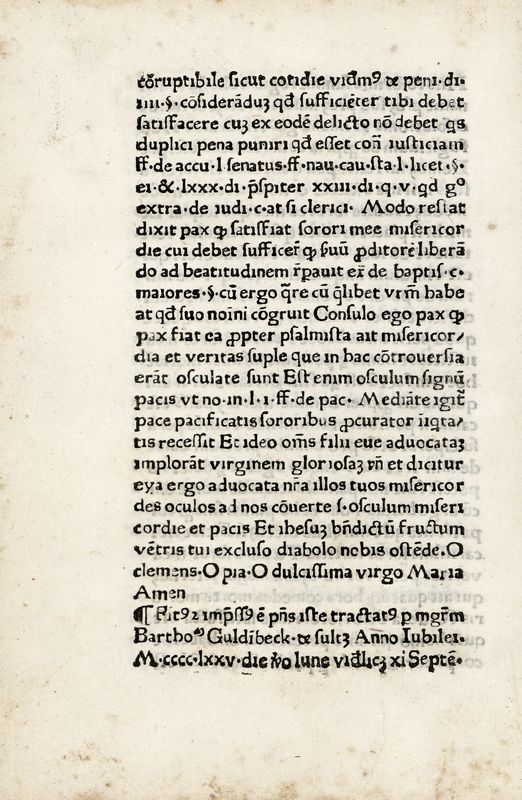 corruptibile sicut cotidie vidm9 ⁊ de peni·di·
iiii·§·cōsiderāduꝫ qd̄ sufficiēter tibi debet
satisfacere cuꝫ ex eodē delicto nō debet qs
duplici pena puniri qd̄ esset con̄ iusticiam
ff·de accu·l·senatus·ff·nau·cau·sta·l·licet·§·
ei·&·lxxx·di·p̄spiter xxiii·di·q·v·qd̄ gº
extra·de iudi·c·at si clerici· Modo restat
dixit pax ꝙ satisfiat sorori mee misericor
die cui debet sufficer̄ ꝙ ẜuū ꝓditorē liberā
do ad beatitudinem r̄pauit ex̄ de baptis·c·
maiores·§·cū ergo q̄re cū q̄libet vr̄m habe
at qd̄ suo noīni cōgruit Consulo ego pax ꝙ
pax fiat ea ꝓpter psalmista ait misericor/
dia et veritas suple que in hac cōtrouersia
erāt osculate sunt Est enim osculum signū
pacis vt no·in·l·i·ff·de pac· Mediāte igit̄
pace pacificatis sororibus ꝓcurator iiqta/
tis recessit Et ideo om̄s filii eue aduocataꝫ
implorāt virginem gloriosaꝫ vn̄ et dicitur
eya ergo aduocata nr̄a illos tuos misericor
des oculos ad nos cōuerte s·osculum miseri
cordie et pacis Et ihesuꝫ bn̄dictū fructum
vētris tui excluso diabolo nobis ostēde·O
clemens·O pia·O dulcissima virgo Maria
Amen
¶ Fit92 imp̄ss9 ē pn̄s iste tractat9 p mgr̄m
Bartho⁹ Guldībeck·de sultꝫ Anno Iubilei·
M·cccc·lxxv·die ṽo lune vid̄licꝫ xi Septē·